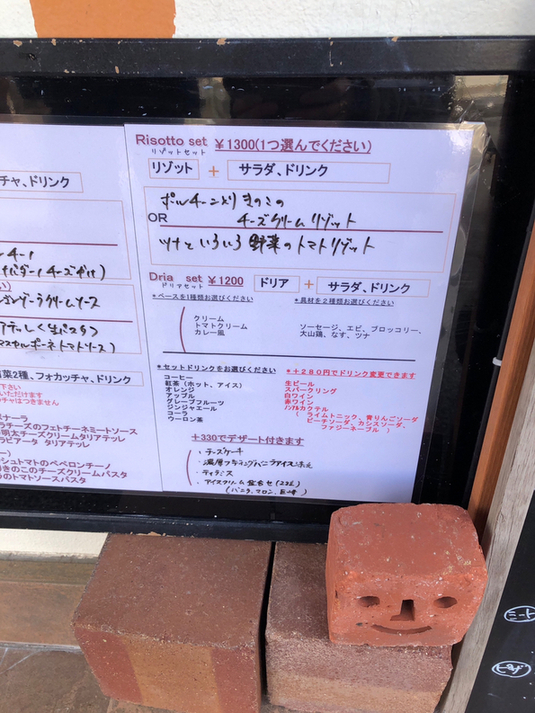 Risotto set ¥1300(1つ選んでください)
リゾットセット
リゾット + サラダ、ドリンク
ポルチーニときのこの
チーズクリームリゾット
OR
ツナといろいろ野菜のトマトリゾット
Dria set ¥1200 ドリア + サラダ、ドリンク
ドリアセット
*ベースを1種類お選びください
クリーム
トマトクリーム
カレー風
*具材を2種類お選びください
ソーセージ、エビ、ブロッコリー、
大山鶏、なす、ツナ
*セットドリンクをお選びください
コーヒー
紅茶(ホット、アイス)
オレンジ
アップル
グレープフルーツ
ジンジャエール
コーラ
ウーロン茶
*+280円でドリンク変更できます
生ビール
スパークリング
白ワイン
赤ワイン
ノンアルカクテル
(ライムトニック、青りんごソーダ
ピーチソーダ、カシスソーダ、
ファジーネーブル )
+330でデザート付きます
・チーズケーキ
・ティラミス
・アイスクリーム盛合せ(2コ)
チャ、ドリンク
菜2種、フォカッチャ、ドリンク
下さい
いただけます
チャはつきません
ナーラ
ラチーズのフェトチーネミートソース
明太チーズクリームタリアテッレ
ラビアータ タリアテッレ
シュトマトのペペロンチーノ
きのこのチーズクリームパスタ
のトマトソースパスタ
ミート
ピザ